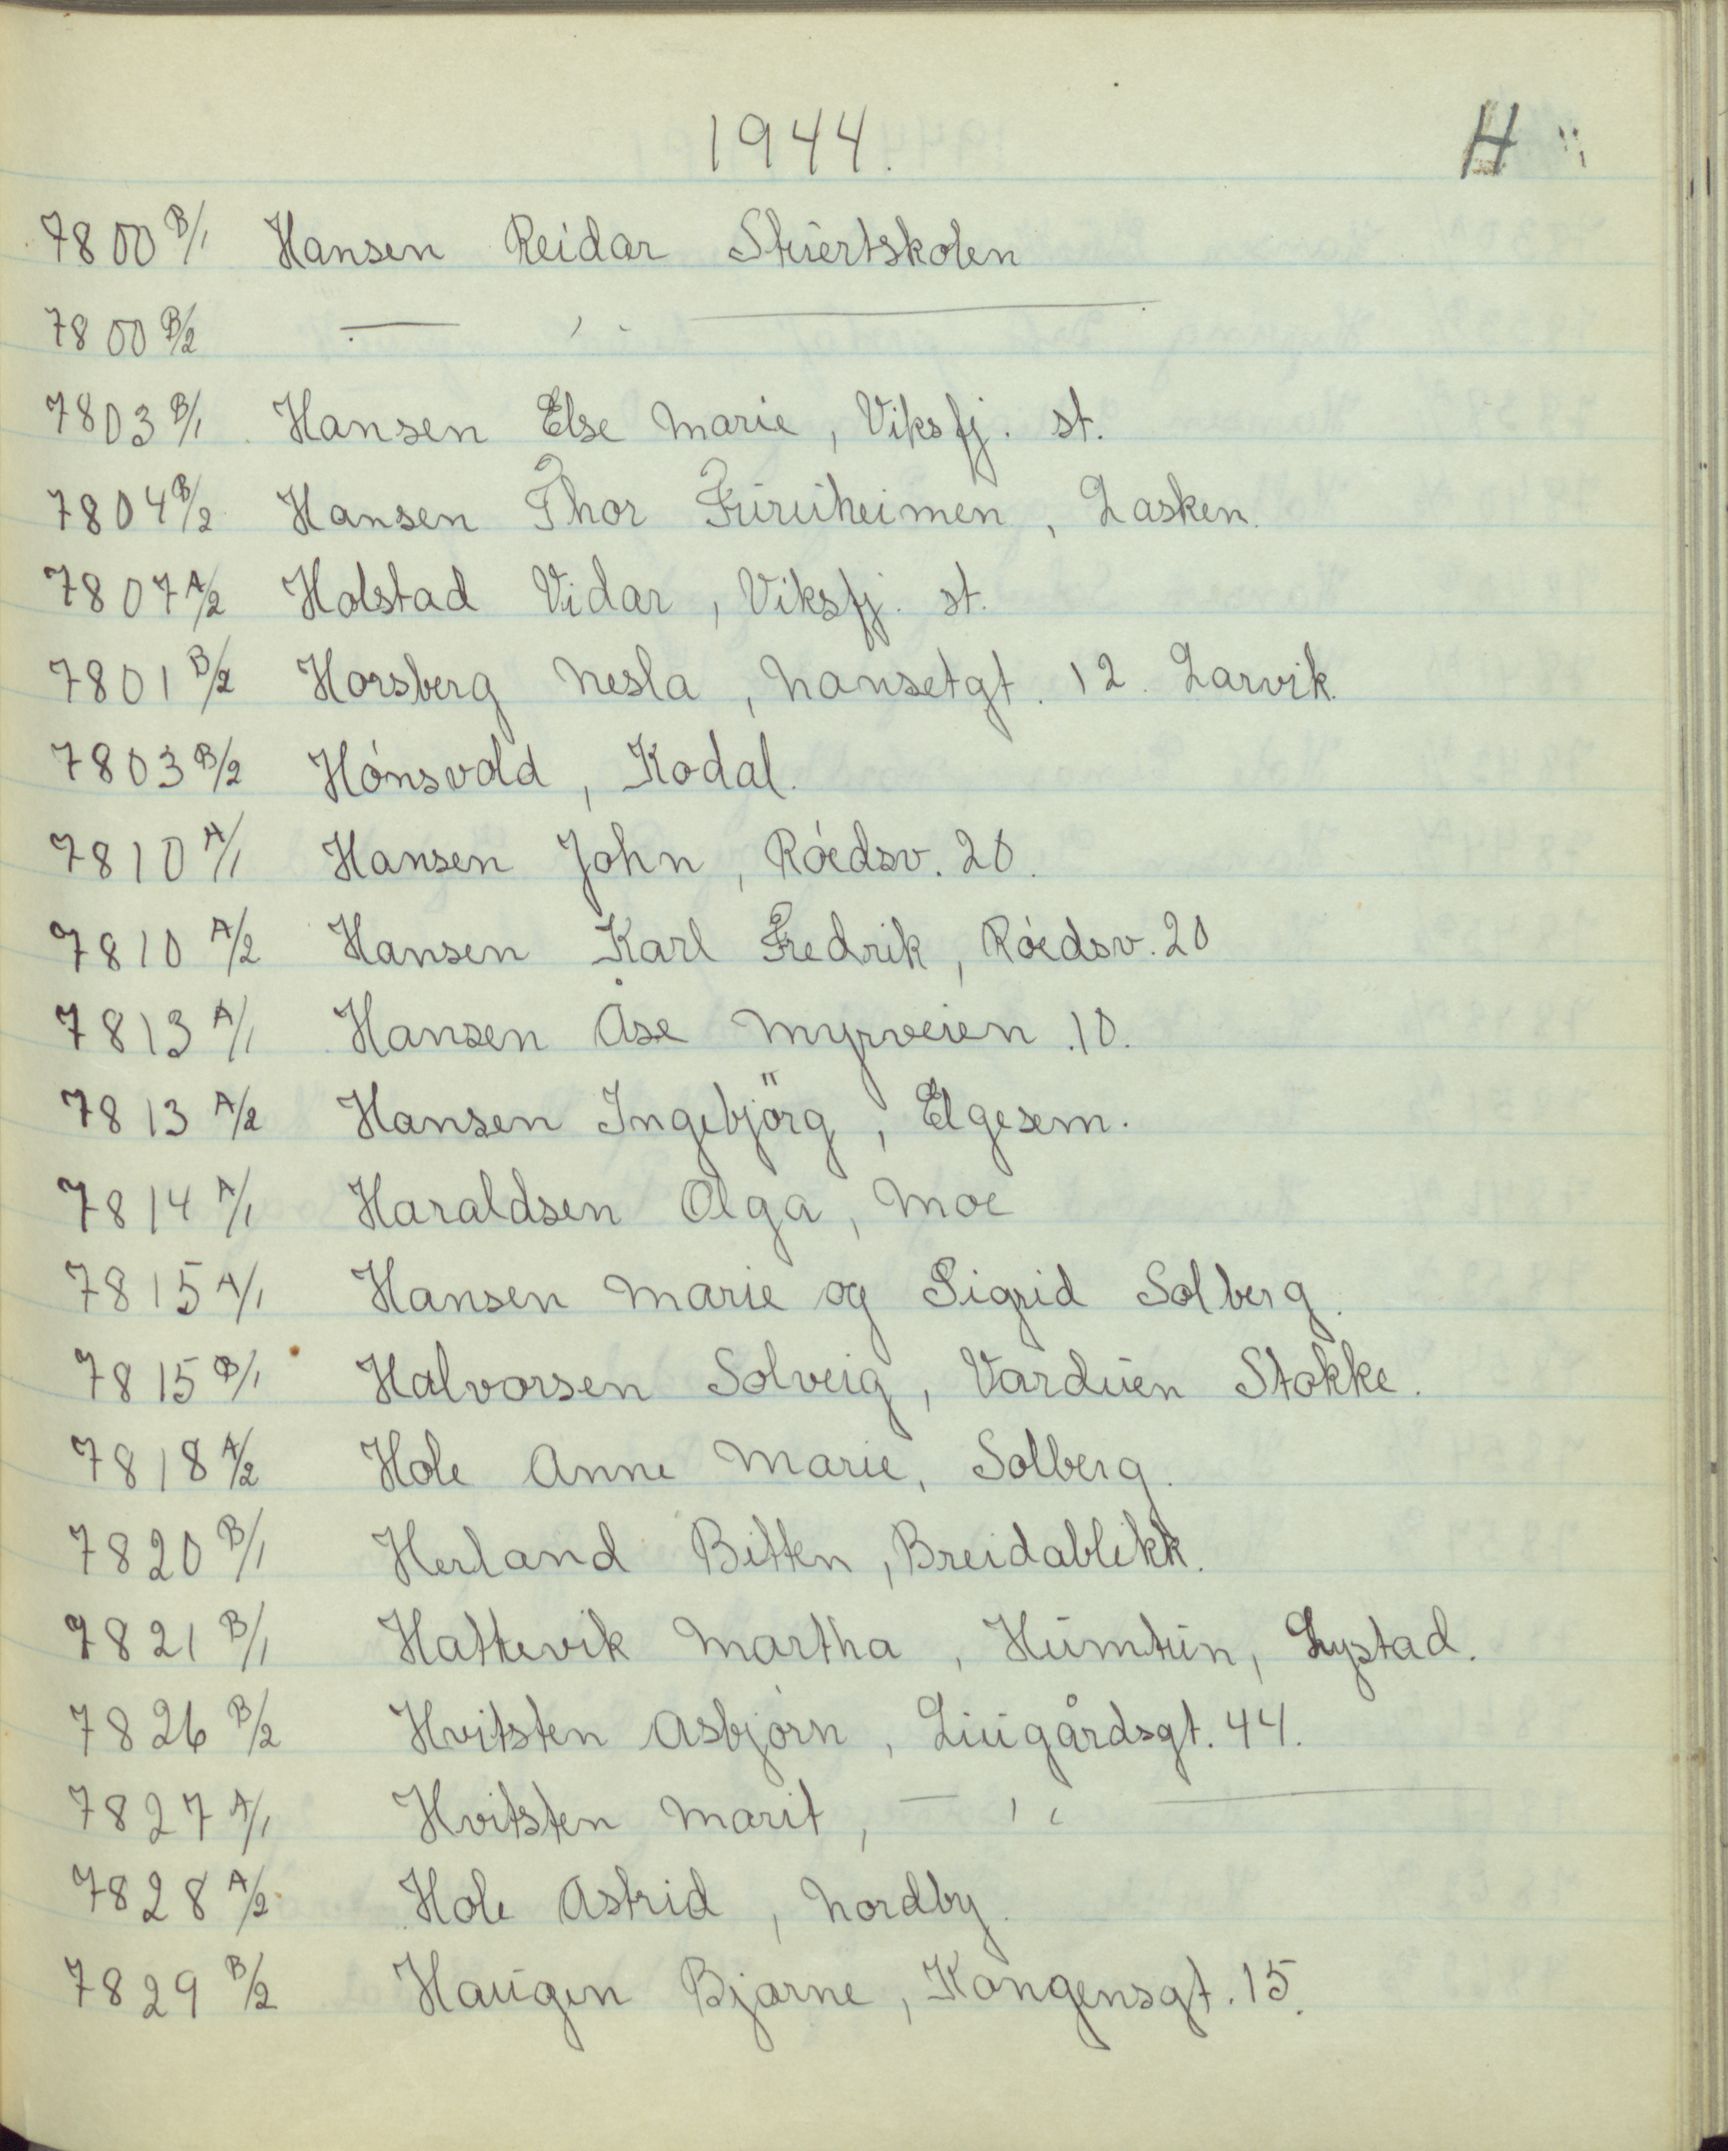 1944.
H
7800 B/1 Hansen Reidar Stuertskolen
7800 B/2 — ,, —
7803 B/1 Hansen Else Marie, Viksfj. st.
7804 B/2 Hansen Thor Furuheimen, Lasken.
7807 A/2 Holstad Vidar, Viksfj. st.
7801 B/2 Horsberg Nesla, Nansetgt. 12. Larvik.
7803 B/2 Hónsvold, Kodal.
7810 A/1 Hansen John, Róedsv. 20.
7810 A/2 Hansen Karl Fredrik, Róedsv. 20
7813 A/1 Hansen Åse Myrveien 10.
7813 A/2 Hansen Ingebjörg, Elgesem.
7814 A/1 Haraldsen Olga, Moe
7815 A/1 Hansen Marie og Sigrid Solberg.
7815 B/1 Halvorsen Solveig, Varduen Stokke.
7818 A/2 Hole Anne Marie, Solberg.
7820 B/1 Herland Bitten, Breidablikk.
7821 B/1 Hattevik Martha, Humtun, Lystad.
7826 B/2 Hvitsten Asbjórn, Liugårdsgt. 44.
7827 A/1 Hvitsten Marit, — ,, —
7828 A/2 Hole Astrid, Nordby.
7829 B/2 Haugen Bjarne, Kongensgt. 15.